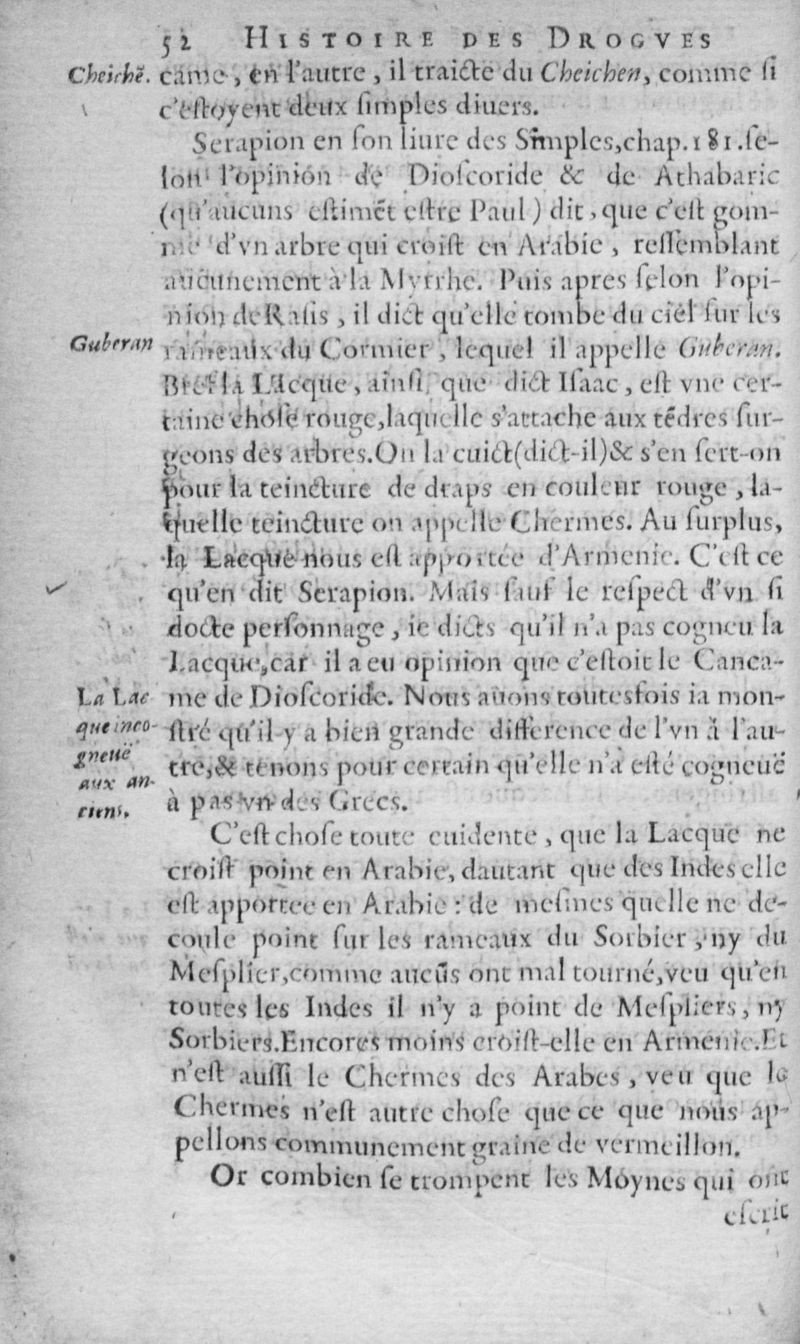 52 HISTOIRE DES DROGVES
Cheichẽ.
came, en l'autre, il traicte du Cheichen, comme ſi
c'eſtoyent deux ſimples diuers.
Serapion en ſon liure des Simples,chap.181.ſe-
lon l'opinion de Dioſcoride & de Athabaric
(qu'aucuns eſtimẽt eſtre Paul) dit, que c'eſt gom-
me d'vn arbre qui croiſt en Arabie, reſſemblant
aucunement à la Myrrhe. Puis apres ſelon l'opi-
nion de Raſis, il dict qu'elle tombe du ciel ſur les
Guberan
rameaux du Cormier, lequel il appelle Guberan.
Bref la Lacque, ainſi que dict Iſaac, eſt vne cer-
taine choſe rouge,laquelle s'attache aux tẽdres ſur-
geons des arbres.On la cuict(dict-il)& s'en ſert-on
pour la teincture de draps en couleur rouge, la-
quelle teincture on appelle Chermes. Au ſurplus,
la Lacque nous eſt apportée d'Armenie. C'eſt ce
qu'en dit Serapion. Mais ſauf le reſpect d'vn ſi
docte perſonnage, ie dicts qu'il n'a pas cogneu la
Lacque,car il a eu opinion que c'eſtoit le Canca-
La Lac
que inco-
gneuë
aux an-
ciens.
me de Dioſcoride. Nous auons toutesfois ia mon-
ſtré qu'il y a bien grande difference de l'vn à l'au-
tre,& tenons pour certain qu'elle n'a eſté cogneuë
à pas vn des Grecs.
C'eſt choſe toute euidente, que la Lacque ne
croiſt point en Arabie, dautant que des Indes elle
eſt apportee en Arabie: de meſmes quelle ne de-
coule point ſur les rameaux du Sorbier, ny du
Meſplier,comme aucũs ont mal tourné,veu qu'en
toutes les Indes il n'y a point de Meſpliers, ny
Sorbiers.Encores moins croiſt-elle en Armenie.Et
n'eſt auſſi le Chermes des Arabes, veu que le
Chermes n'eſt autre choſe que ce que nous ap-
pellons communement graine de vermeillon.
Or combien ſe trompent les Moynes qui ont
eſcrit